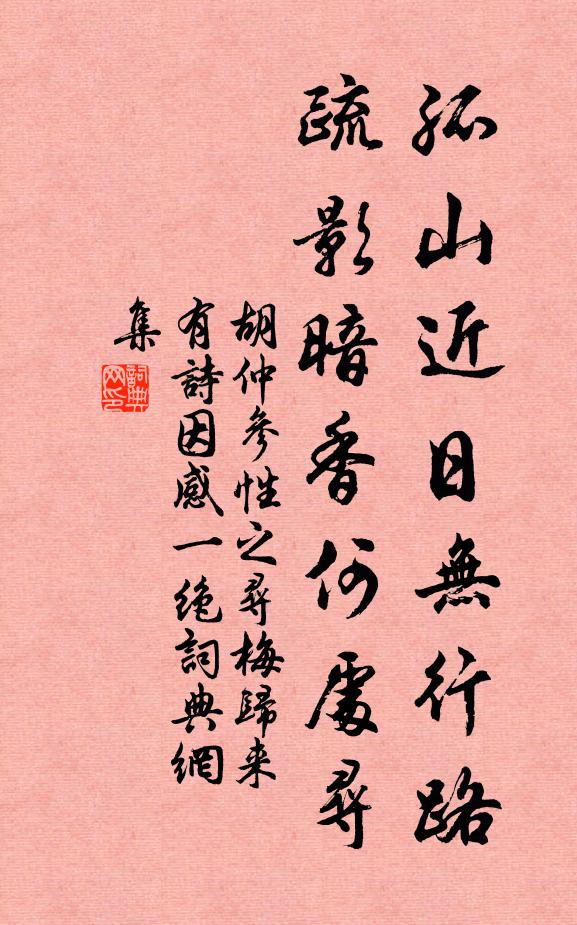 孤山近日無行路
疏影暗香何處尋
胡仲參性之尋梅歸来
有詩因感一絶詞典網
集
詞典網印